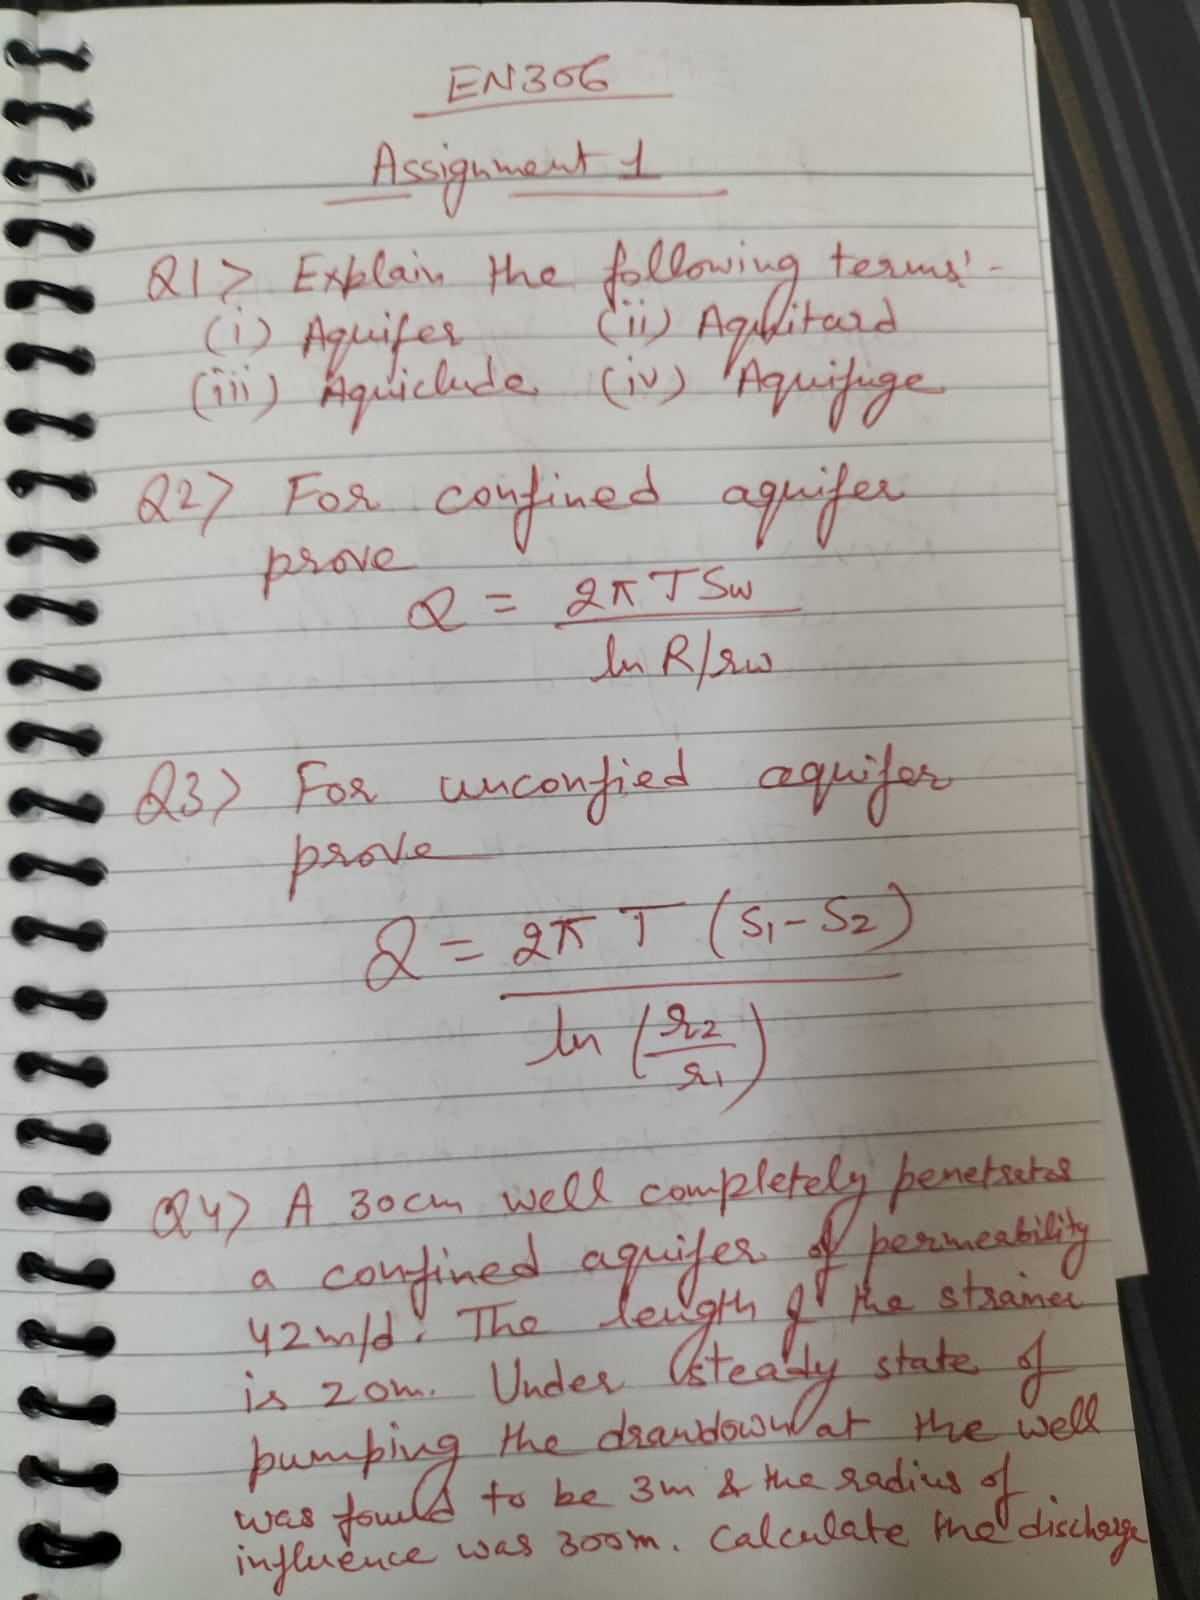 EN306
Assignment 1
Q1> Explain the following terms:-
(i) Aquifer (ii) Aquitard
(iii) Aquiclude (iv) Aquifuge
Q2> For confined aquifer
prove
Q = 2π T Sw
ln R/rw
Q3> For unconfied aquifer
prove
Q = 2π T (S1-S2)
ln (r2
r1)
Q4> A 30cm well completely penetrates
a confined aquifer of permeability
42m/d. The length of the strainer
is 20m. Under steady state of
pumping the drawdown at the well
was found to be 3m & the radius of
influence was 300m. Calculate the discharge